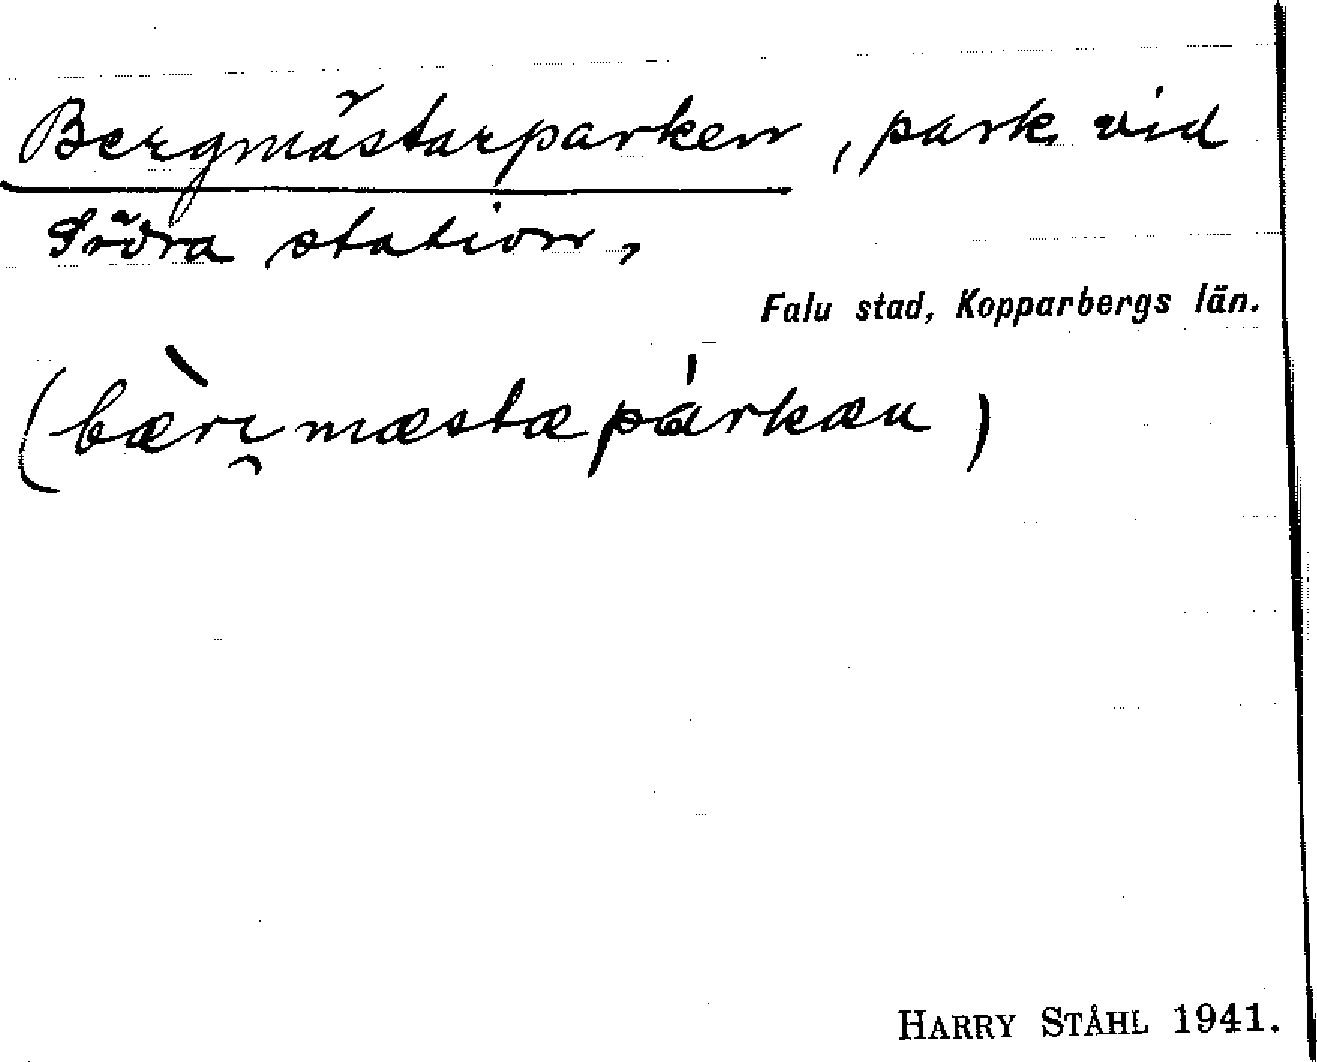 Bergmästarparken, park vid
Södra station,
Falu stad, Kopparbergs län.
(bæ̀ri̯mæstæpárkæn)
HARRY STÅHL 1941.